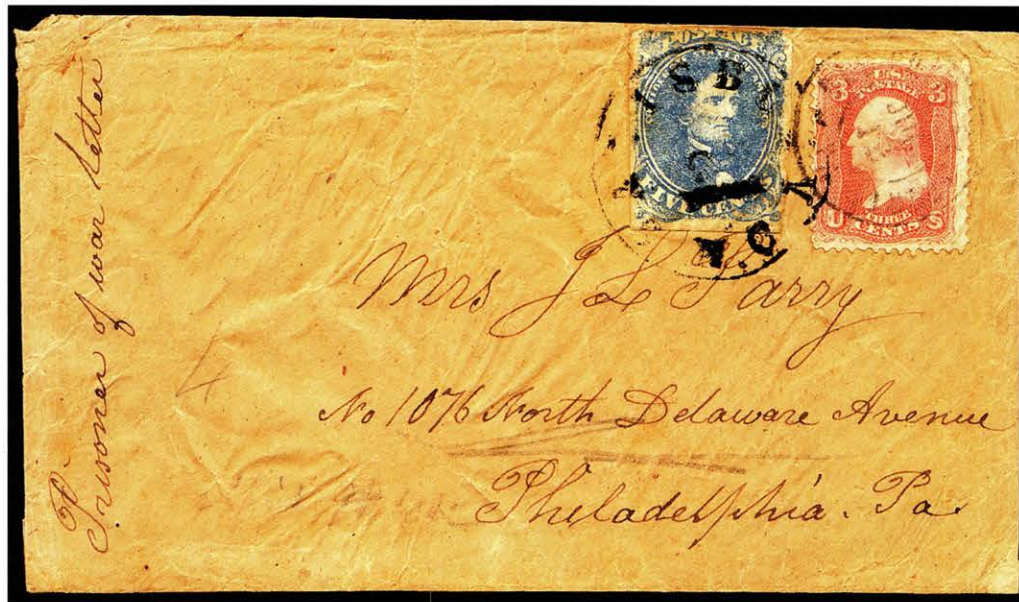 Prisoner of war letter
POSTAGE
FIVE CENTS
SB
N.C.
3 U.S. POSTAGE 3
U THREE CENTS S
Mrs J L Parry
No 1076 North Delaware Avenue
Philadelphia. Pa.
4